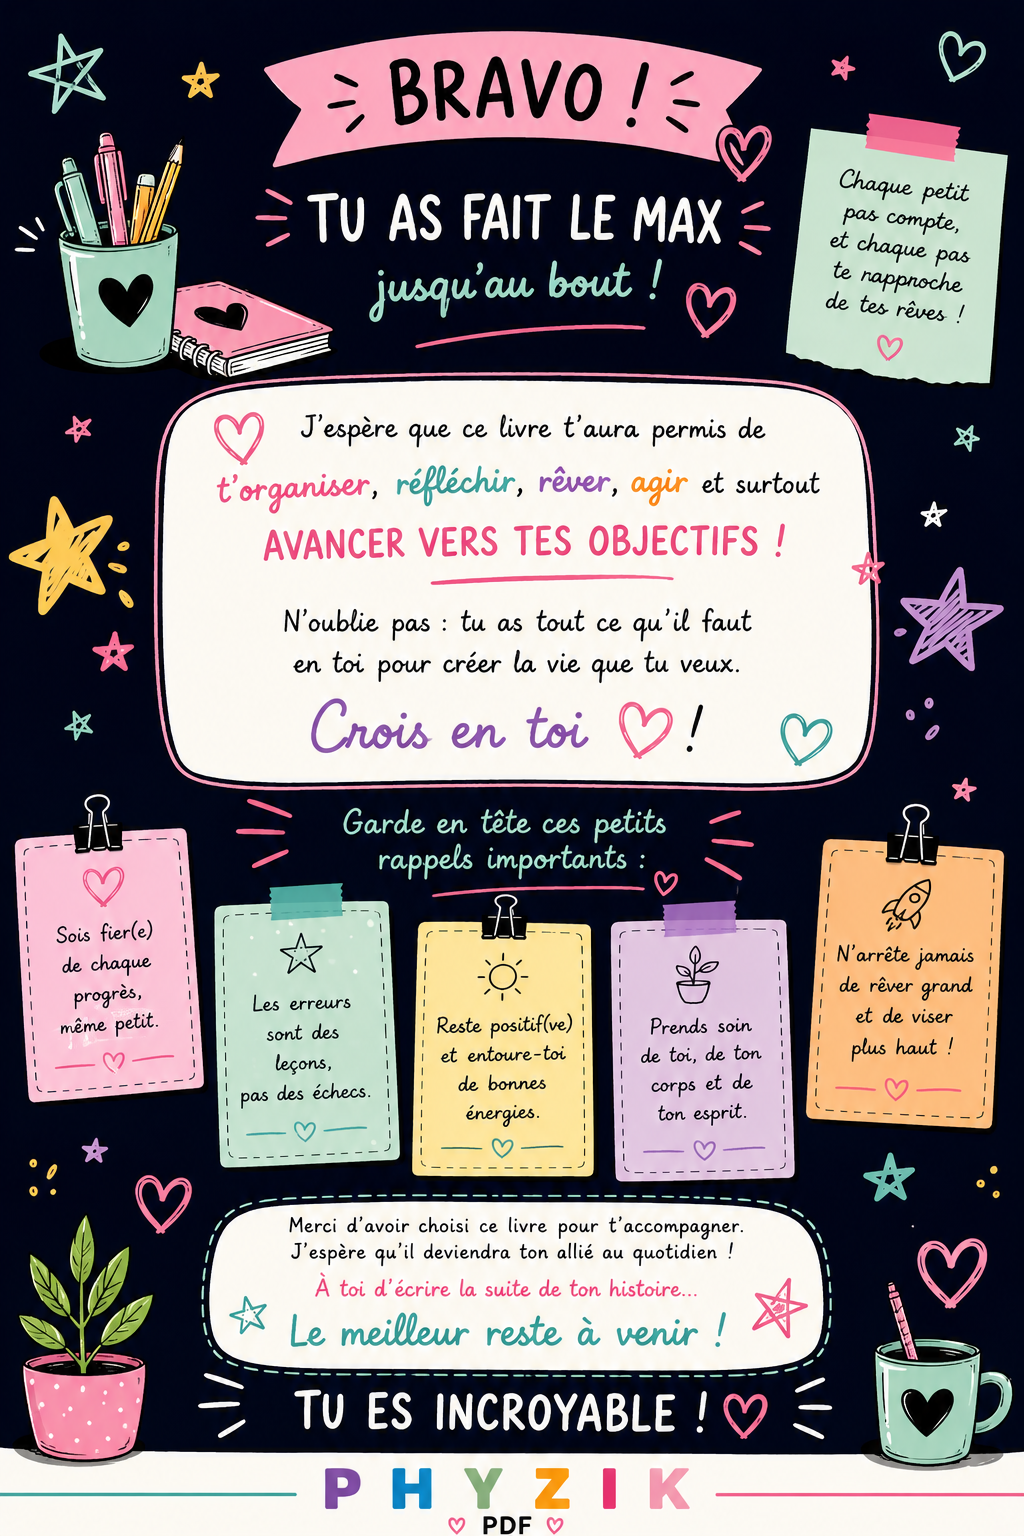 BRAVO !
TU AS FAIT LE MAX
jusqu'au bout !
Chaque petit
pas compte,
et chaque pas
te rapproche
de tes rêves !
J'espère que ce livre t'aura permis de
t'organiser, réfléchir, rêver, agir et surtout
AVANCER VERS TES OBJECTIFS !
N'oublie pas : tu as tout ce qu'il faut
en toi pour créer la vie que tu veux.
Crois en toi !
Garde en tête ces petits
rappels importants :
Sois fier(e)
de chaque
progrès,
même petit.
Les erreurs
sont des
leçons,
pas des échecs.
Reste positif(ve)
et entoure-toi
de bonnes
énergies.
Prends soin
de toi, de ton
corps et de
ton esprit.
N'arrête jamais
de rêver grand
et de viser
plus haut !
Merci d'avoir choisi ce livre pour t'accompagner.
J'espère qu'il deviendra ton allié au quotidien !
À toi d'écrire la suite de ton histoire...
Le meilleur reste à venir !
TU ES INCROYABLE !
PHYZIK
PDF